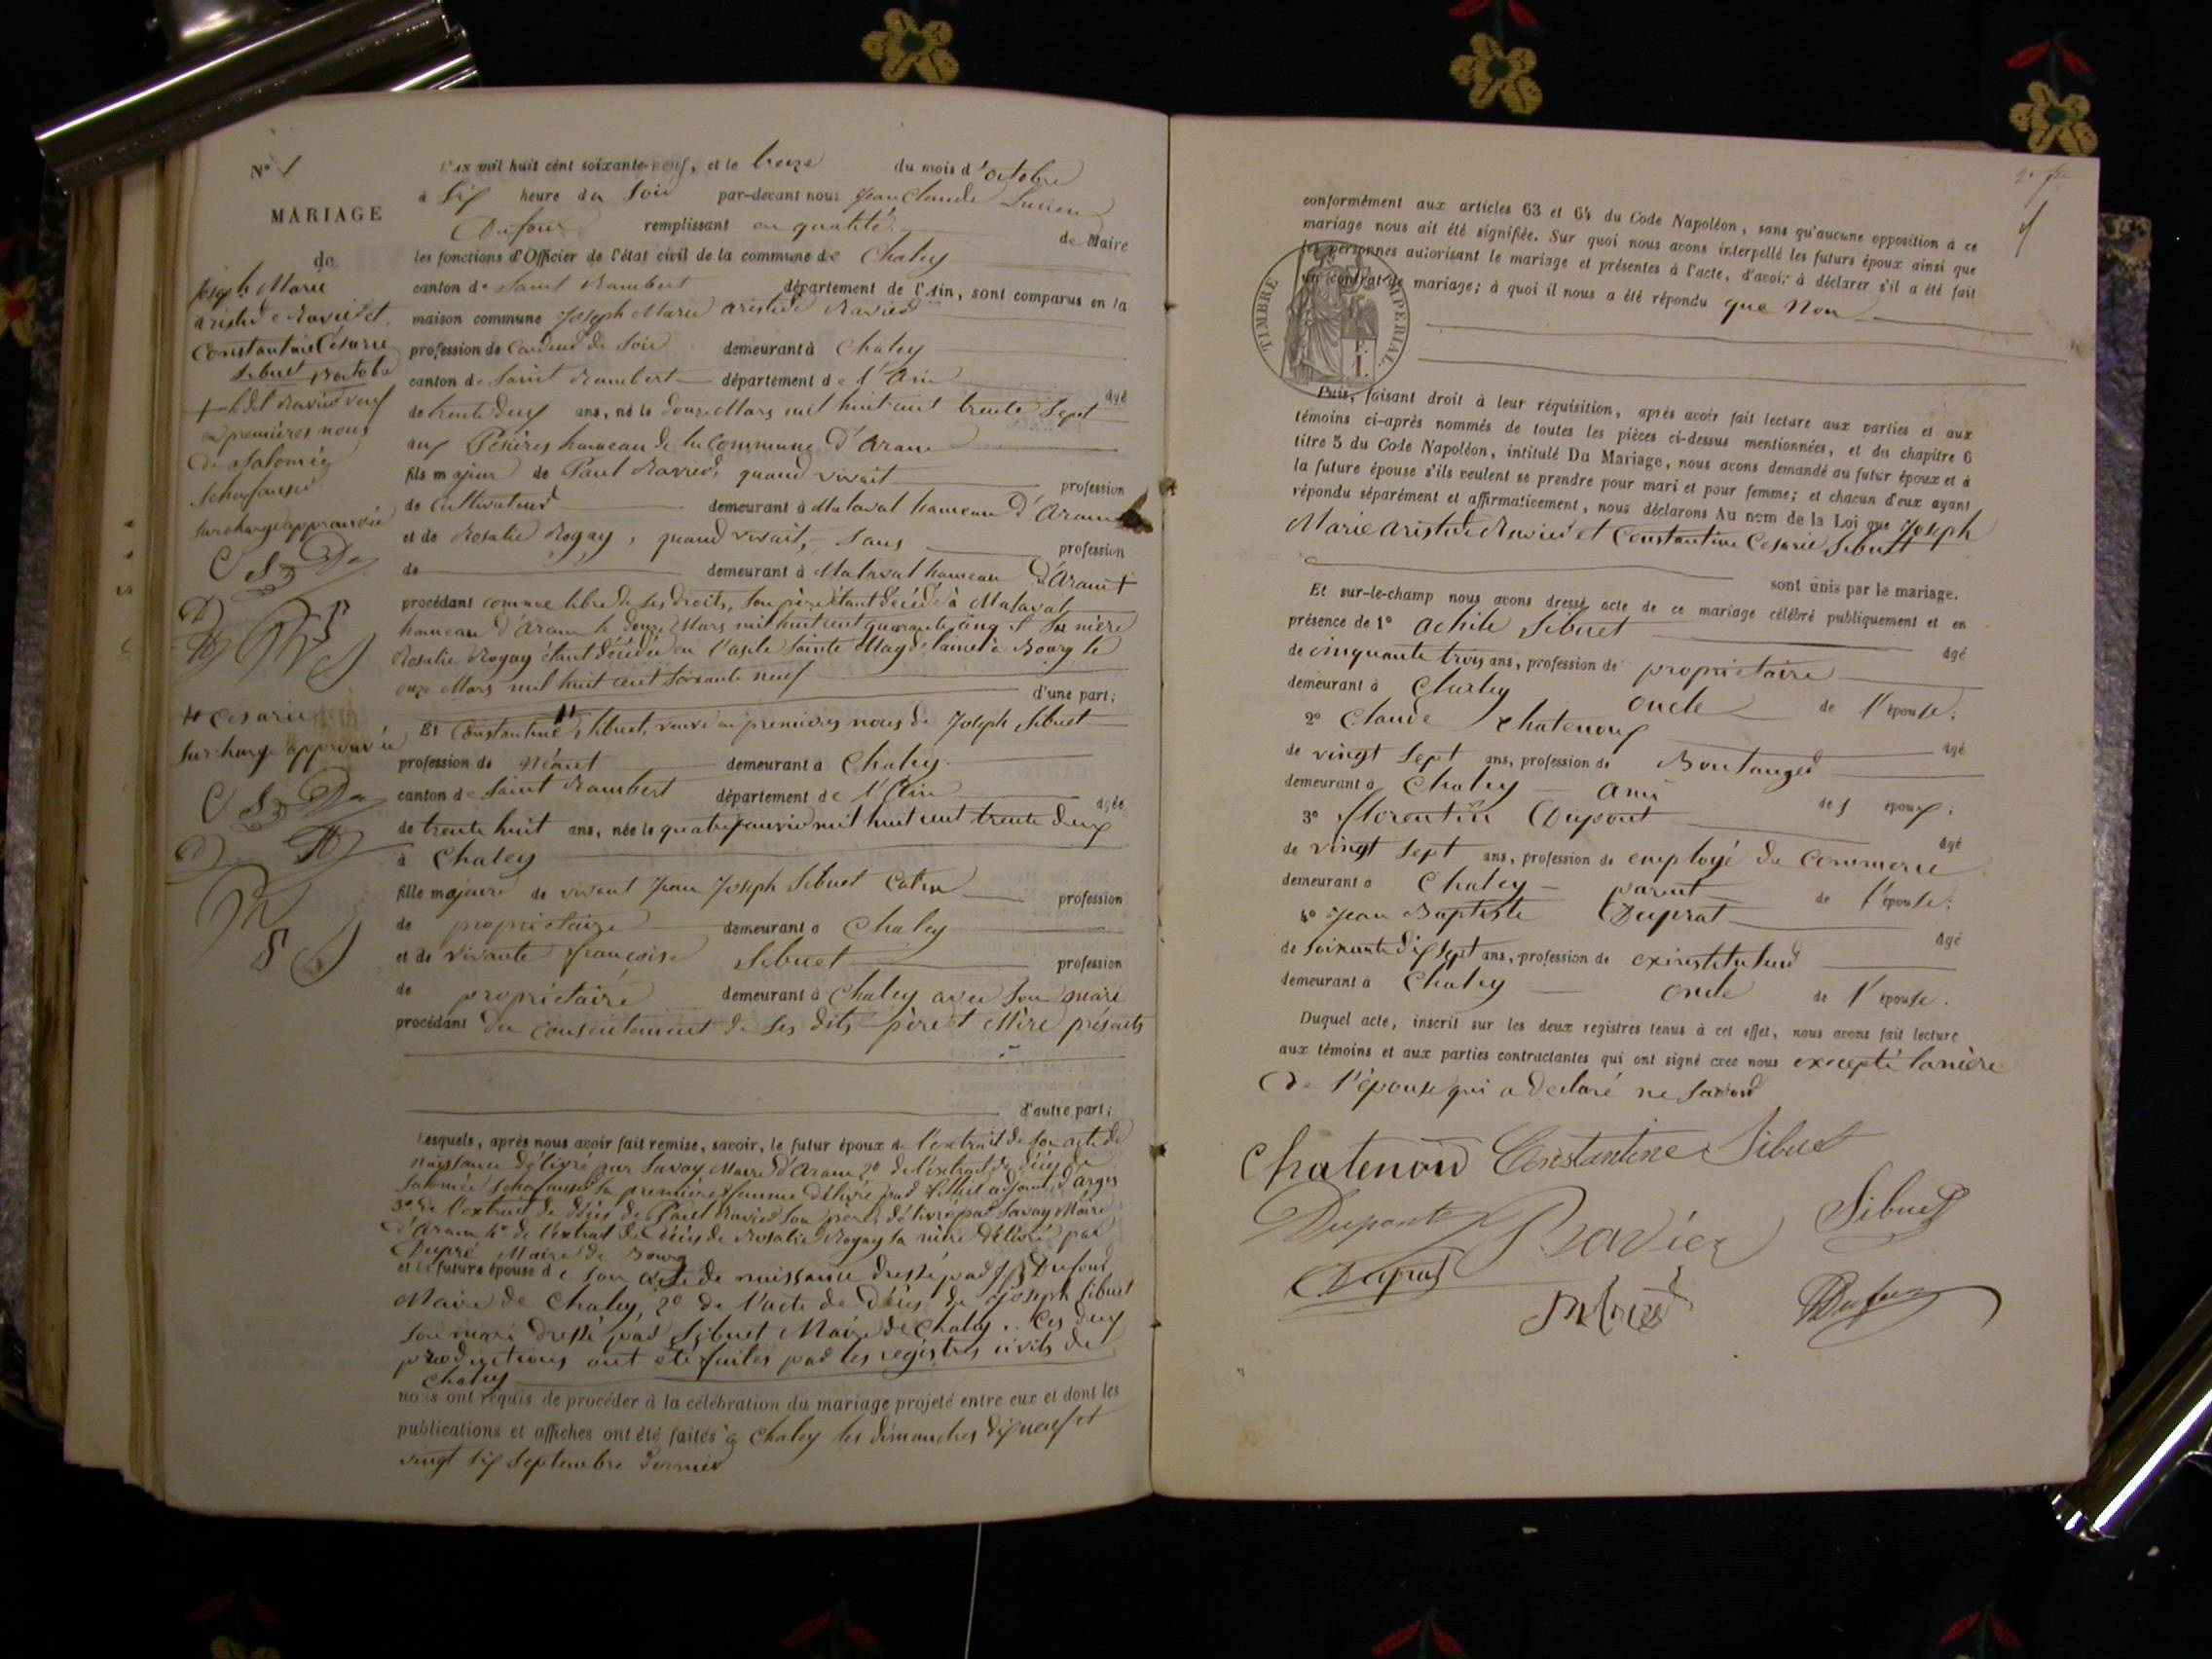 N° 1
MARIAGE
de
Joseph Marie
Aristide Ravier et
Constantine Césarie
Sibuet 13 octobre
+ ledit Ravier veuf
en premières nous
de Salomée
Schafauser
Surcharge approuvée
++ Césarie
Surcharge approuvée
L'AN mil huit cent soixante-neuf, et le treize du mois d'octobre
à six heure du Soir par-devant nous Jean Claude Lucien
Dufour remplissant en qualité de Maire
les fonctions d'Officier de l'état civil de la commune de Chaley
canton de Saint Rambert département de l'Ain, sont comparus en la
maison commune Joseph Marie Aristide Ravier
profession de Cardeur de Soie demeurant à Chaley
canton de Saint Rambert département de l'Ain âgé
de trente deux ans, né le douze Mars mil huit cent trente Sept
aux Pézières hameau de la Commune d'Aranc
fils majeur de Paul Ravier, quand vivait profession
de Cultivateur demeurant à Malaval hameau d'Aranc
et de Rosalie Rogay, quand vivait, Sans profession
de demeurant à Malaval hameau d'Aranc +
procédant comme libre de ses droits, Son père étant décédé à Malaval
hameau d'Aranc le douze Mars mil huit cent quarante cinq et Sa mère
Rosalie Rogay étant décédée en l'asile Sainte Magdelaine à Bourg le
onze Mars mil huit cent Soixante neuf
d'une part;
Et Constantine ++ Sibuet, veuve en premières nous de Joseph Sibuet
profession de Néant demeurant à Chaley
canton de Saint Rambert département de l'Ain âgée
de trente huit ans, née le quatre janvier mil huit cent trente deux
à Chaley
fille majeure de vivant Jean Joseph Sibuet Catin profession
de propriétaire demeurant à Chaley
et de vivante françoise Sibuet profession
de propriétaire demeurant à Chaley avec Son mari
procédant du consentement de Ses dits père et Mère présents
d'autre part;
Lesquels, après nous avoir fait remise, savoir, le futur époux de l'extrait de Son acte de
naissance délivré par Savay Maire d'Aranc 2° de l'extrait de décès de
Salomée Schafauser Sa première femme délivré par adjoint d'Argis
3° de l'extrait de décès de Paul Ravier Son père délivré par Savay Maire
d'Aranc 4° de l'extrait de décès de Rosalie Rogay Sa mère délivré par
Dupré Maire de Bourg
et la future épouse de Son acte de naissance dressé par Dufour
Maire de Chaley, 2° de l'acte de décès de Joseph Sibuet
Son mari dressé par Sibuet Maire de Chaley. Ces deux
productions ont été faites par les régistres civils de
Chaley
nous ont requis de procéder à la célébration du mariage projeté entre eux et dont les
publications et affiches ont été faites à Chaley les dimanches dix neuf et
vingt six Septembre dernier
conformément aux articles 63 et 64 du Code Napoléon, sans qu'aucune opposition à ce
mariage nous ait été signifiée. Sur quoi nous avons interpellé les futurs époux ainsi que
les personnes autorisant le mariage et présentes à l'acte, d'avoir à déclarer s'il a été fait
un contrat de mariage; à quoi il nous a été répondu que Non
TIMBRE IMPERIAL
Puis, faisant droit à leur réquisition, après avoir fait lecture aux parties et aux
témoins ci-après nommés de toutes les pièces ci-dessus mentionnées, et du chapitre 6
titre 5 du Code Napoléon, intitulé Du Mariage, nous avons demandé au futur époux et à
la future épouse s'ils veulent se prendre pour mari et pour femme; et chacun d'eux ayant
répondu séparément et affirmativement, nous déclarons Au nom de la Loi que Joseph
Marie Aristide Ravier et Constantine Césarie Sibuet
sont unis par le mariage.
Et sur-le-champ nous avons dressé acte de ce mariage célébré publiquement et en
présence de 1° Achile Sibuet âgé
de cinquante trois ans, profession de propriétaire
demeurant à Chaley oncle de l'épouse;
2° Claude Chatenoux âgé
de vingt Sept ans, profession de Boulanger
demeurant à Chaley ami de l époux;
3° Florentin Dupont âgé
de vingt Sept ans, profession de employé de Commerce
demeurant à Chaley parent de l'épouse;
4° Jean Baptiste Duprat âgé
de soixante dix Sept ans, profession de exinstituteur
demeurant à Chaley oncle de l'épouse.
Duquel acte, inscrit sur les deux registres tenus à cet effet, nous avons fait lecture
aux témoins et aux parties contractantes qui ont signé avec nous excepté la mère
de l'épouse qui a déclaré ne Savoir
Chatenoud Constantine Sibuet
Dupont Ravier Sibuet
Duprat Dufour